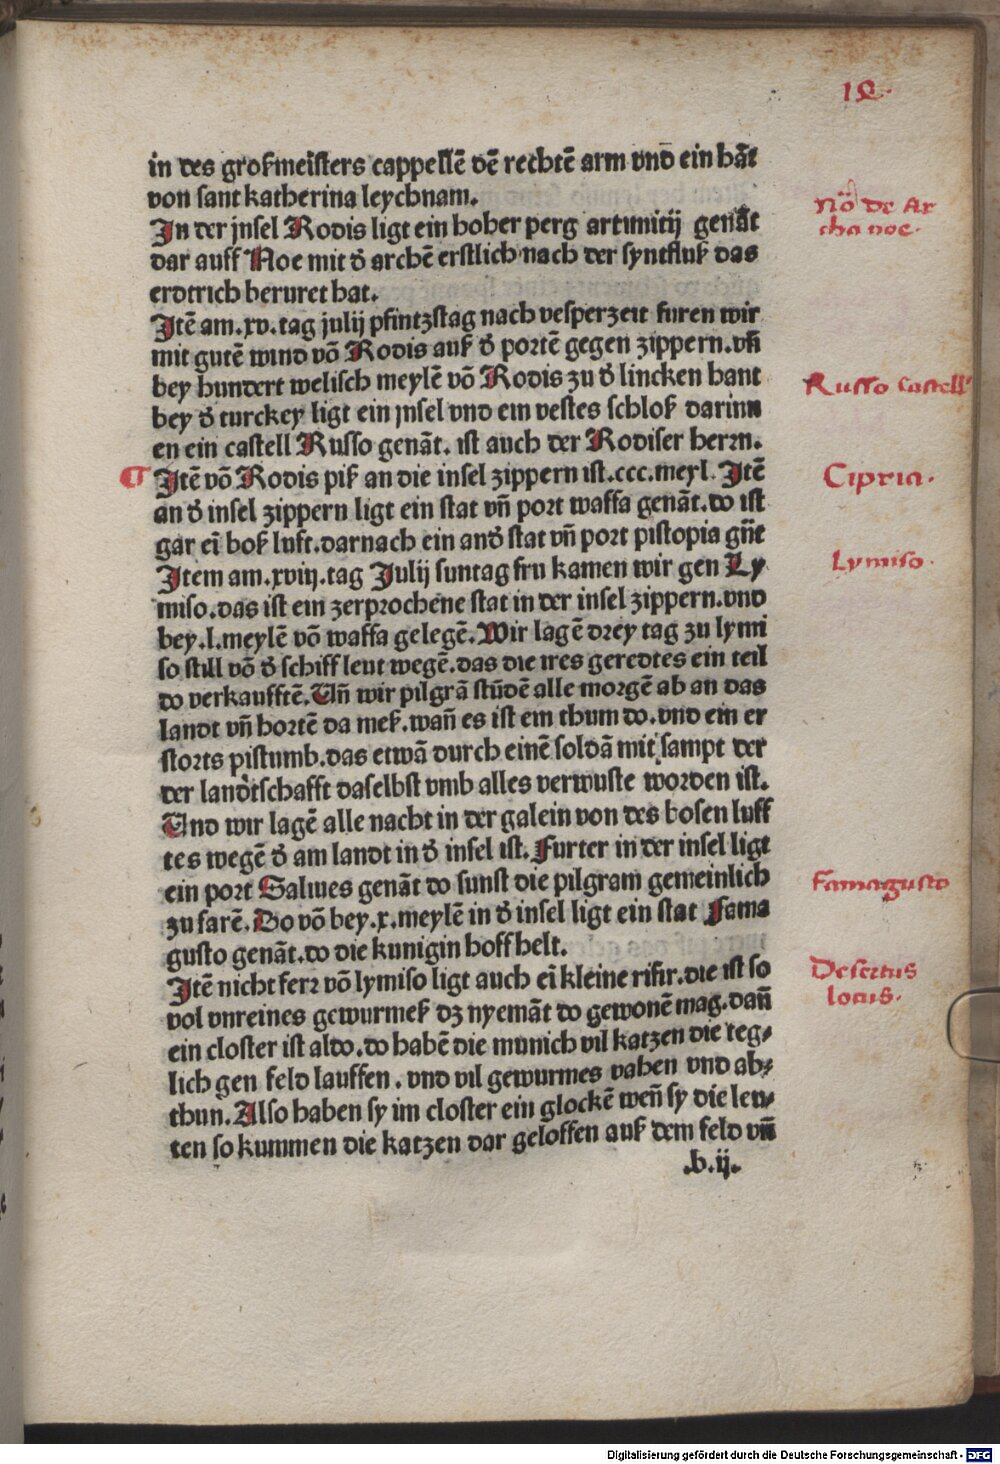 in des großmeisters cappellē dē rechtē arm vnd ein hāt
von sant katherina leychnam.
In der jnsel Rodis ligt ein hoher perg artimitij genāt
dar auff Noe mit d̕ archē erstlich nach der syntfluß das
erdtrich beruret hat.
Itē am .xv. tag julij pfintzstag nach vesperzeit furen wir
mit gutē wind vō Rodis auß d̕ portē gegen zippern. vn̄
bey hundert welisch meylē vō Rodis zu d̕ lincken hant
bey d̕ turckey ligt ein jnsel vnd ein vestes schloß darinn
en ein castell Russo genāt. ist auch der Rodiser herrn.
¶ Itē vō Rodis piß an die insel zippern ist .ccc. meyl. Itē
an d̕ insel zippern ligt ein stat vn̄ port waffa genāt. do ist
gar eī boß luft. darnach ein and̕ stat vn̄ port pistopia gn̄t
Item am .xviij. tag Julij suntag fru kamen wir gen Ly
miso. das ist ein zerprochene stat in der insel zippern. vnd
bey .l. meylē vō waffa gelegē. Wir lagē drey tag zu lymi
so still vō d̕ schiffleut wegē. das die ires geredtes ein teil
do verkaufftē. Vn̄ wir pilgrā stūdē alle morgē ab an das
landt vn̄ hortē da meß. wan̄ es ist ein thum do. vnd ein er
storts pistumb. das etwā durch einē soldā mit sampt der
der land̕tschafft daselbst vmb alles verwuste worden ist.
Vnd wir lagē alle nacht in der galein von des bosen luff
tes wegē d̕ am landt in d̕ insel ist. Furter in der insel ligt
ein port Salines genāt do sunst die pilgram gemeinlich
zu farē. Do vō bey .x. meylē in d̕ insel ligt ein stat Fama
gusto genāt. do die kunigin hoff helt.
Itē nicht ferr vō lymiso ligt auch eī kleine rifir. die ist so
vol vnreines gewurmeß dz nyemāt do gewonē mag. dan̄
ein closter ist aldo. do habē die munich vil katzen die teg⸗
lich gen feld lauffen. vnd vil gewurmes vahen vnd ab⸗
thun. Also haben sy im closter ein glockē wen̄ sy die leu⸗
ten so kummen die katzen dar geloffen auß dem feld vn̄
.b.ij.
nō de Ar
cha noe.
Russo castell
Cipria.
Lymiso.
Famagusto
Desertus
locus.
Digitalisierung gefördert durch die Deutsche Forschungsgemeinschaft - DFG